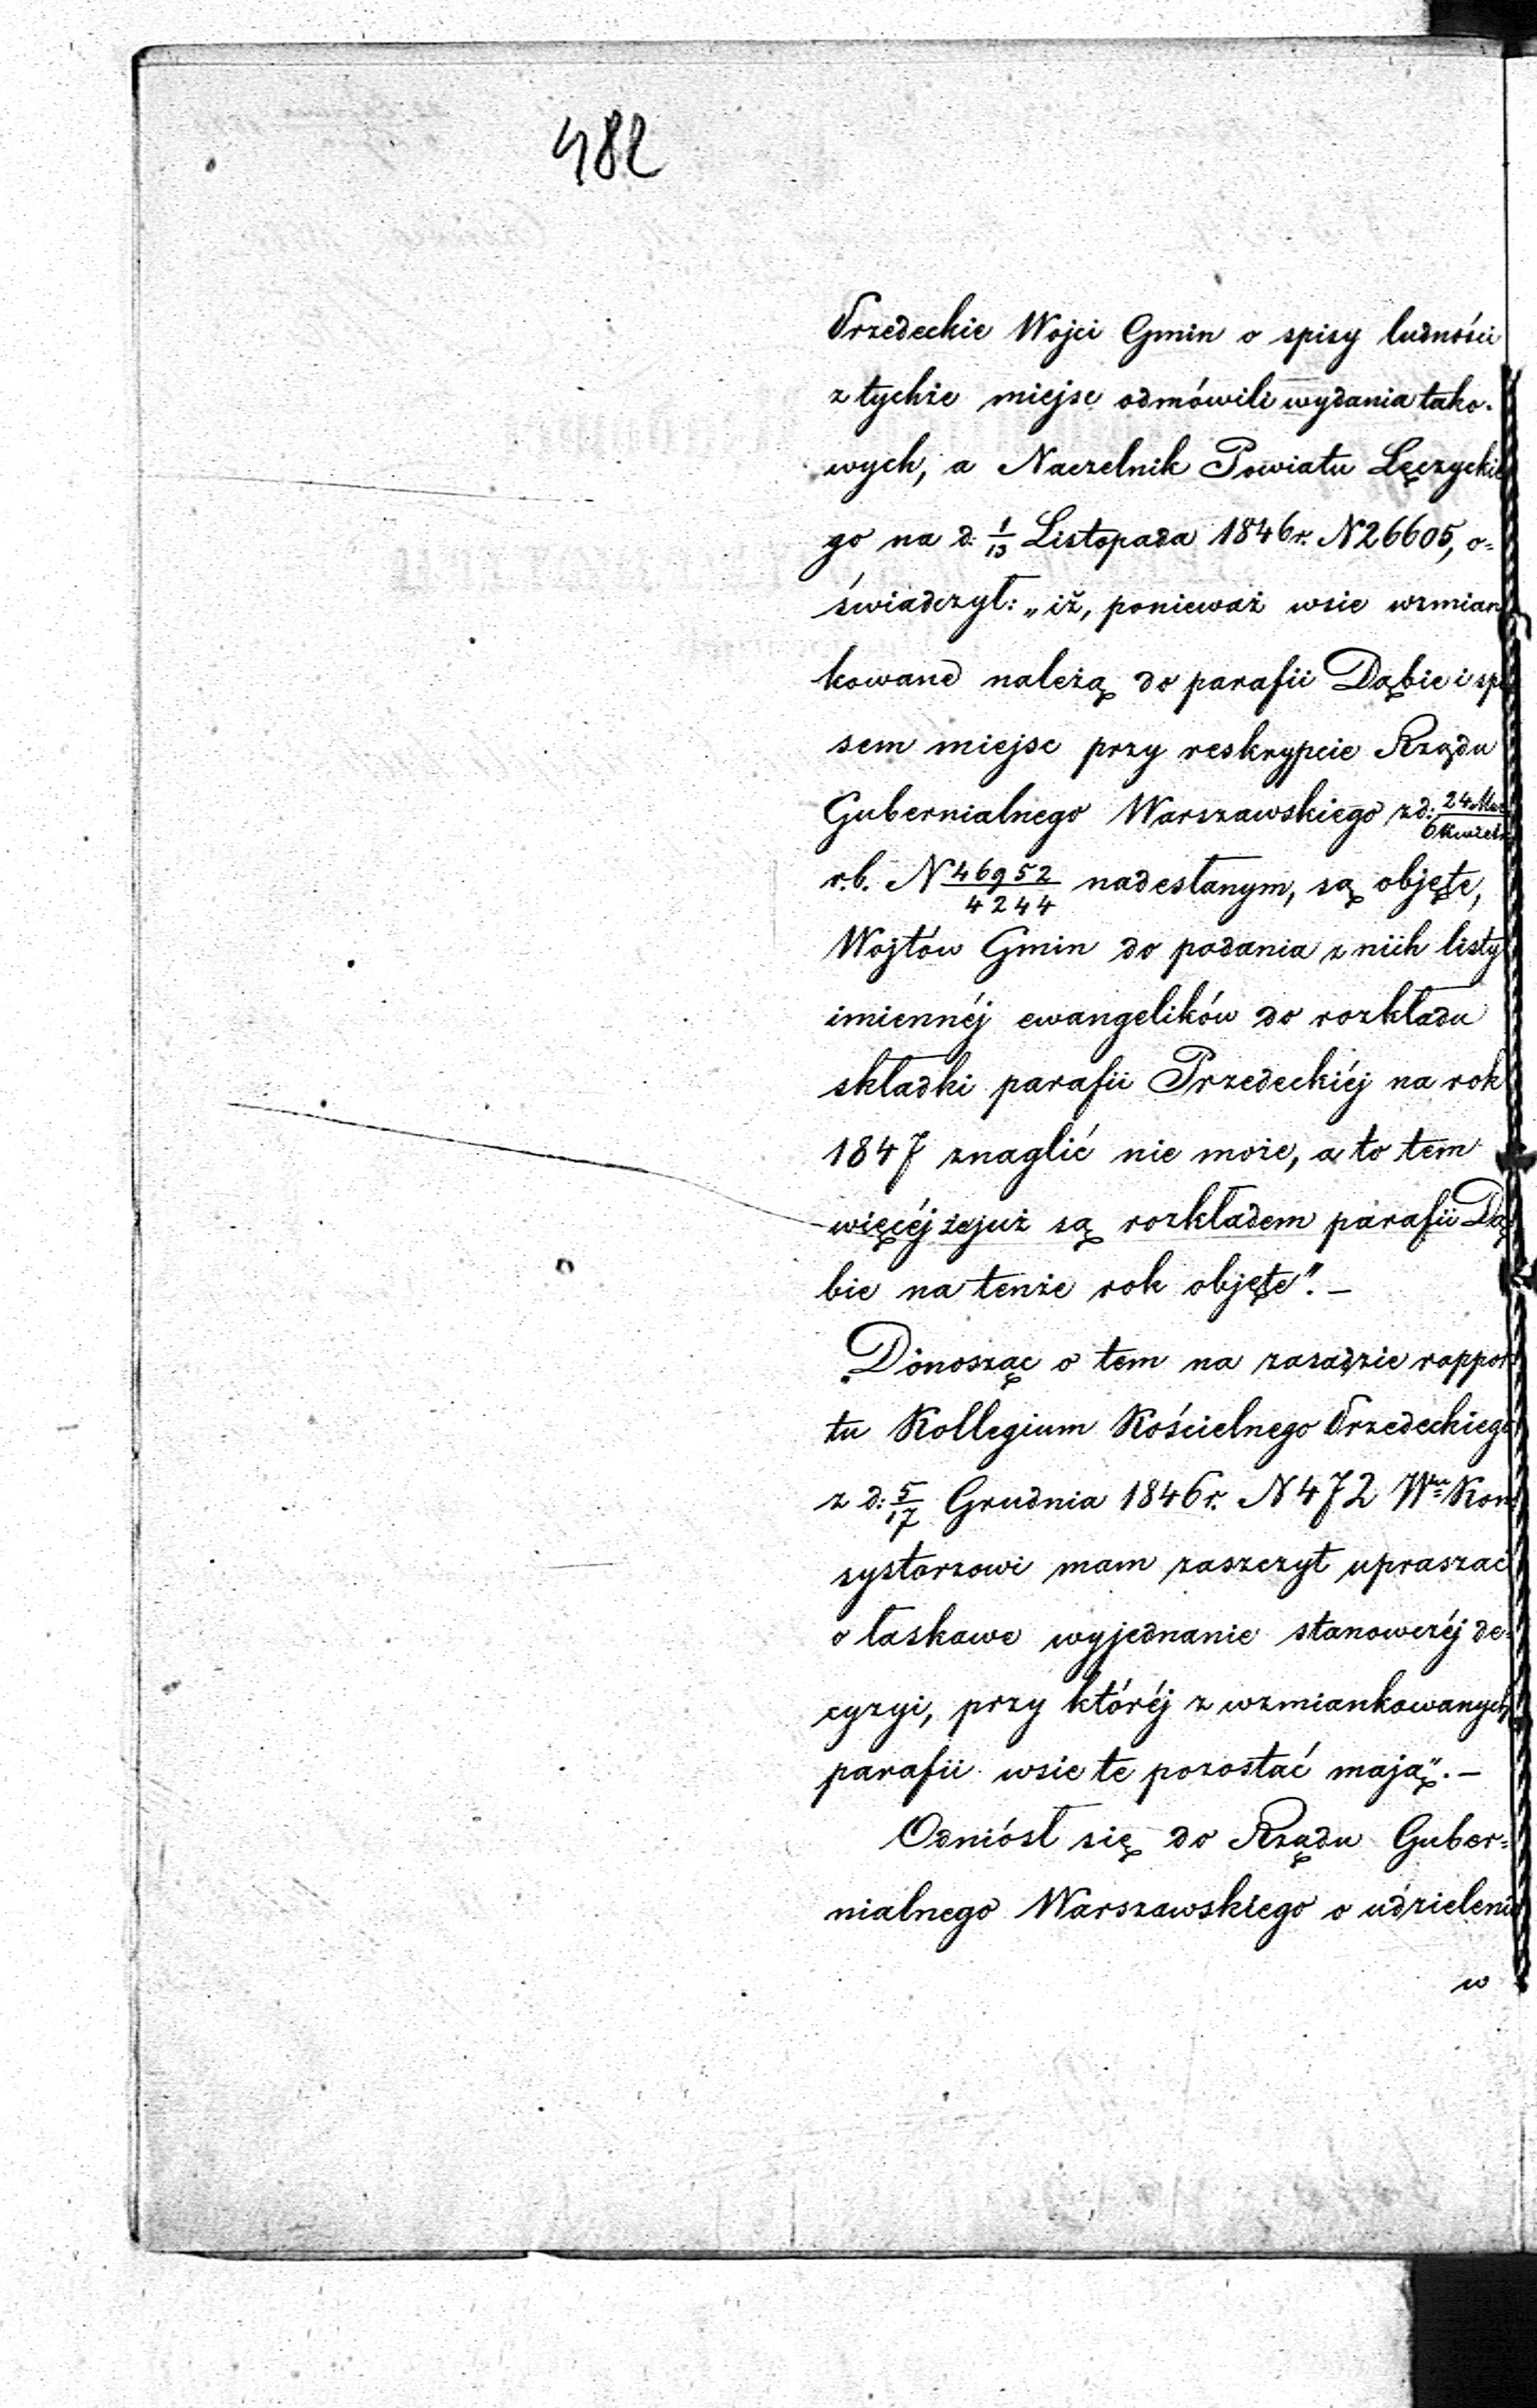 482
Przedeckie Wojci Gmin o spisy ludności
z tychże miejsc odmówili wydania tako-
wych, a Naczelnik Powiatu Łęczyckie
go na d. 1/13 Listopada 1846 r. N 26605, o=
świadczył: „iż, ponieważ wsie wzmian
kowane należą do parafii Dąbie i spi
sem miejsc przy reskrypcie Rządu
Gubernialnego Warszawskiego z d. 24 Mar/6 Kwiet
r.b. N 46952/4244 nadesłanym, są objęte,
Wojtów Gmin do podania z niih listy
imiennéj ewangelików do rozkładu
składki parafii Przedeckiéj na rok
1847 znaglić nie może, a to tem
więcéj że już są rozkładem parafii Dą
bie na tenże rok objęte". –
Donosząc o tem na zasadzie rappor
tu Kollegium Kościelnego Przedeckiego
z d: 5/17 Grudnia 1846 r. N 472 Wmu Kon
systorzowi mam zaszczyt upraszać
o łaskawe wyjednanie stanowczéj de-
cyzyi, przy któréj z wzmiankowanych
parafii wsie te pozostać mają". –
Odniósł się do Rządu Guber=
nialnego Warszawskiego o udzielenie
w